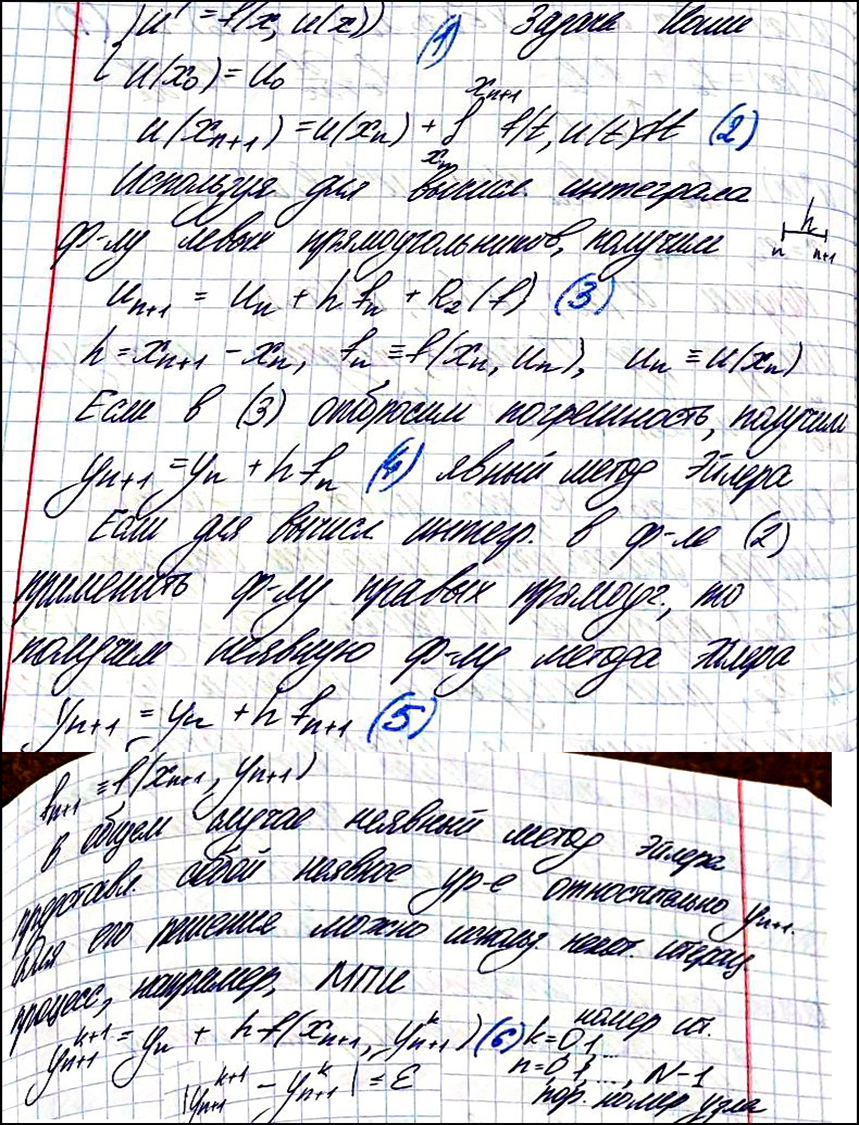 { u' = f(x, u(x)) (1) Задача Коши
u(x₀) = u₀
u(xₙ₊₁) = u(xₙ) + ∫ₓₙˣⁿ⁺¹ f(t, u(t))dt (2)
Используя для вычисл. интеграла
ф-лу левых прямоугольников, получим
h
n n+1
uₙ₊₁ = uₙ + h fₙ + R₂(f) (3)
h = xₙ₊₁ - xₙ, fₙ ≡ f(xₙ, uₙ), uₙ ≡ u(xₙ)
Если в (3) отбросим погрешность, получим
yₙ₊₁ = yₙ + h fₙ (4) явный метод Эйлера
Если для вычисл. интегр. в ф-ле (2)
применить ф-лу правых прямоуг., то
получим неявную ф-лу метода Эйлера
yₙ₊₁ = yₙ + h fₙ₊₁ (5)
fₙ₊₁ ≡ f(xₙ₊₁, yₙ₊₁)
В общем случае неявный метод Эйлера
представл. собой неявное ур-е относительно yₙ₊₁.
Для его решение можно использ. некот. итерац.
процесс, например, МПИ
номер ит.
yₙ₊₁ᵏ⁺¹ = yₙ + h f(xₙ₊₁, yₙ₊₁ᵏ) (6) k = 0,1,...
n = 0,1,..., N-1
|yₙ₊₁ᵏ⁺¹ - yₙ₊₁ᵏ| ≤ ε
пор. номер узла